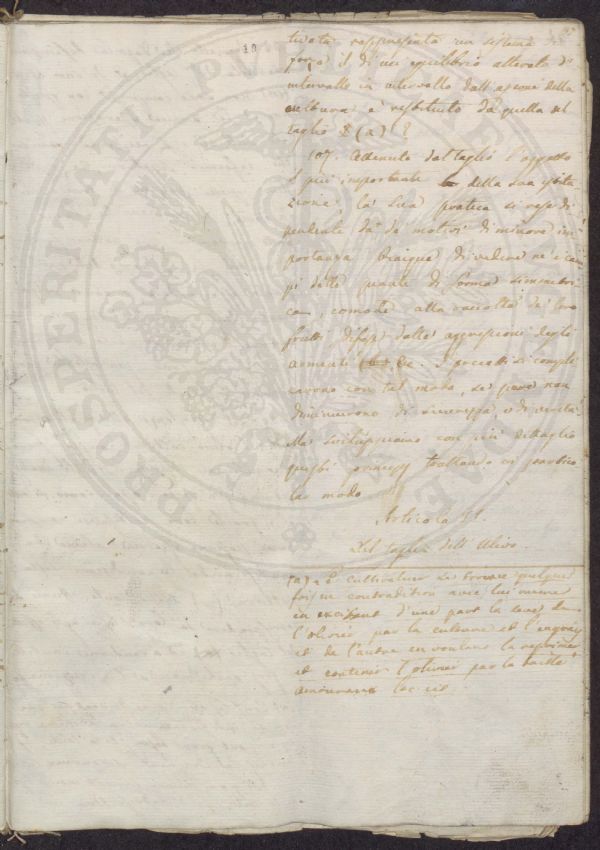 10
tivata rappresenta un sistema di
forza il di cui equilibrio alterato d'
intervallo in intervallo dall'azione della
cultura è restituito da quella del
taglio (a)?
107. Ottenuto dal taglio l'oggetto
il più importante della sua istitu
zione, la sua pratica si rese di
pendente da de' motivi di minore im
portanza. Bisogna di vedere ne' cam
pi delle piante di forma simmetri
ca, comode alla raccolta de' loro
frutti difese dalle aggressioni degli
armenti &c. I precetti si compli
carono con tal modo, se pure non
diminuirono di sicurezza, o di verità.
Ma sviluppiamo con più dettaglio
questi principj trattando in partico
lar modo
Articolo II.
Del taglio dell'Ulivo.
(a) L'cultivateur se trouve quelque
fois en contradition avec lui meme
en excitant d'une part la seve de
l'olivier par la culture et l'engrais
et de l'autre en voulant la reprimer
et contenir l'olivier par la taille
amoureux loc. cit.
PROSPERITATI PUBLICAE